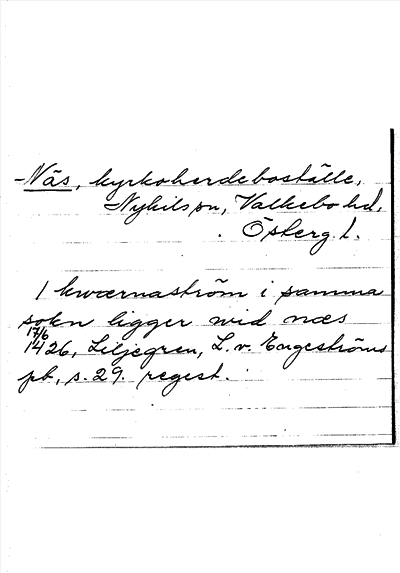 -Näs, kyrkoherdeboställe,
Nykils sn, Valkebo hd,
Österg. l.
1 kwærnaström i samma
sokn ligger wid næs
17/6
1426, Liljegren, L. v. Engeströms
pb, s. 29. regest.